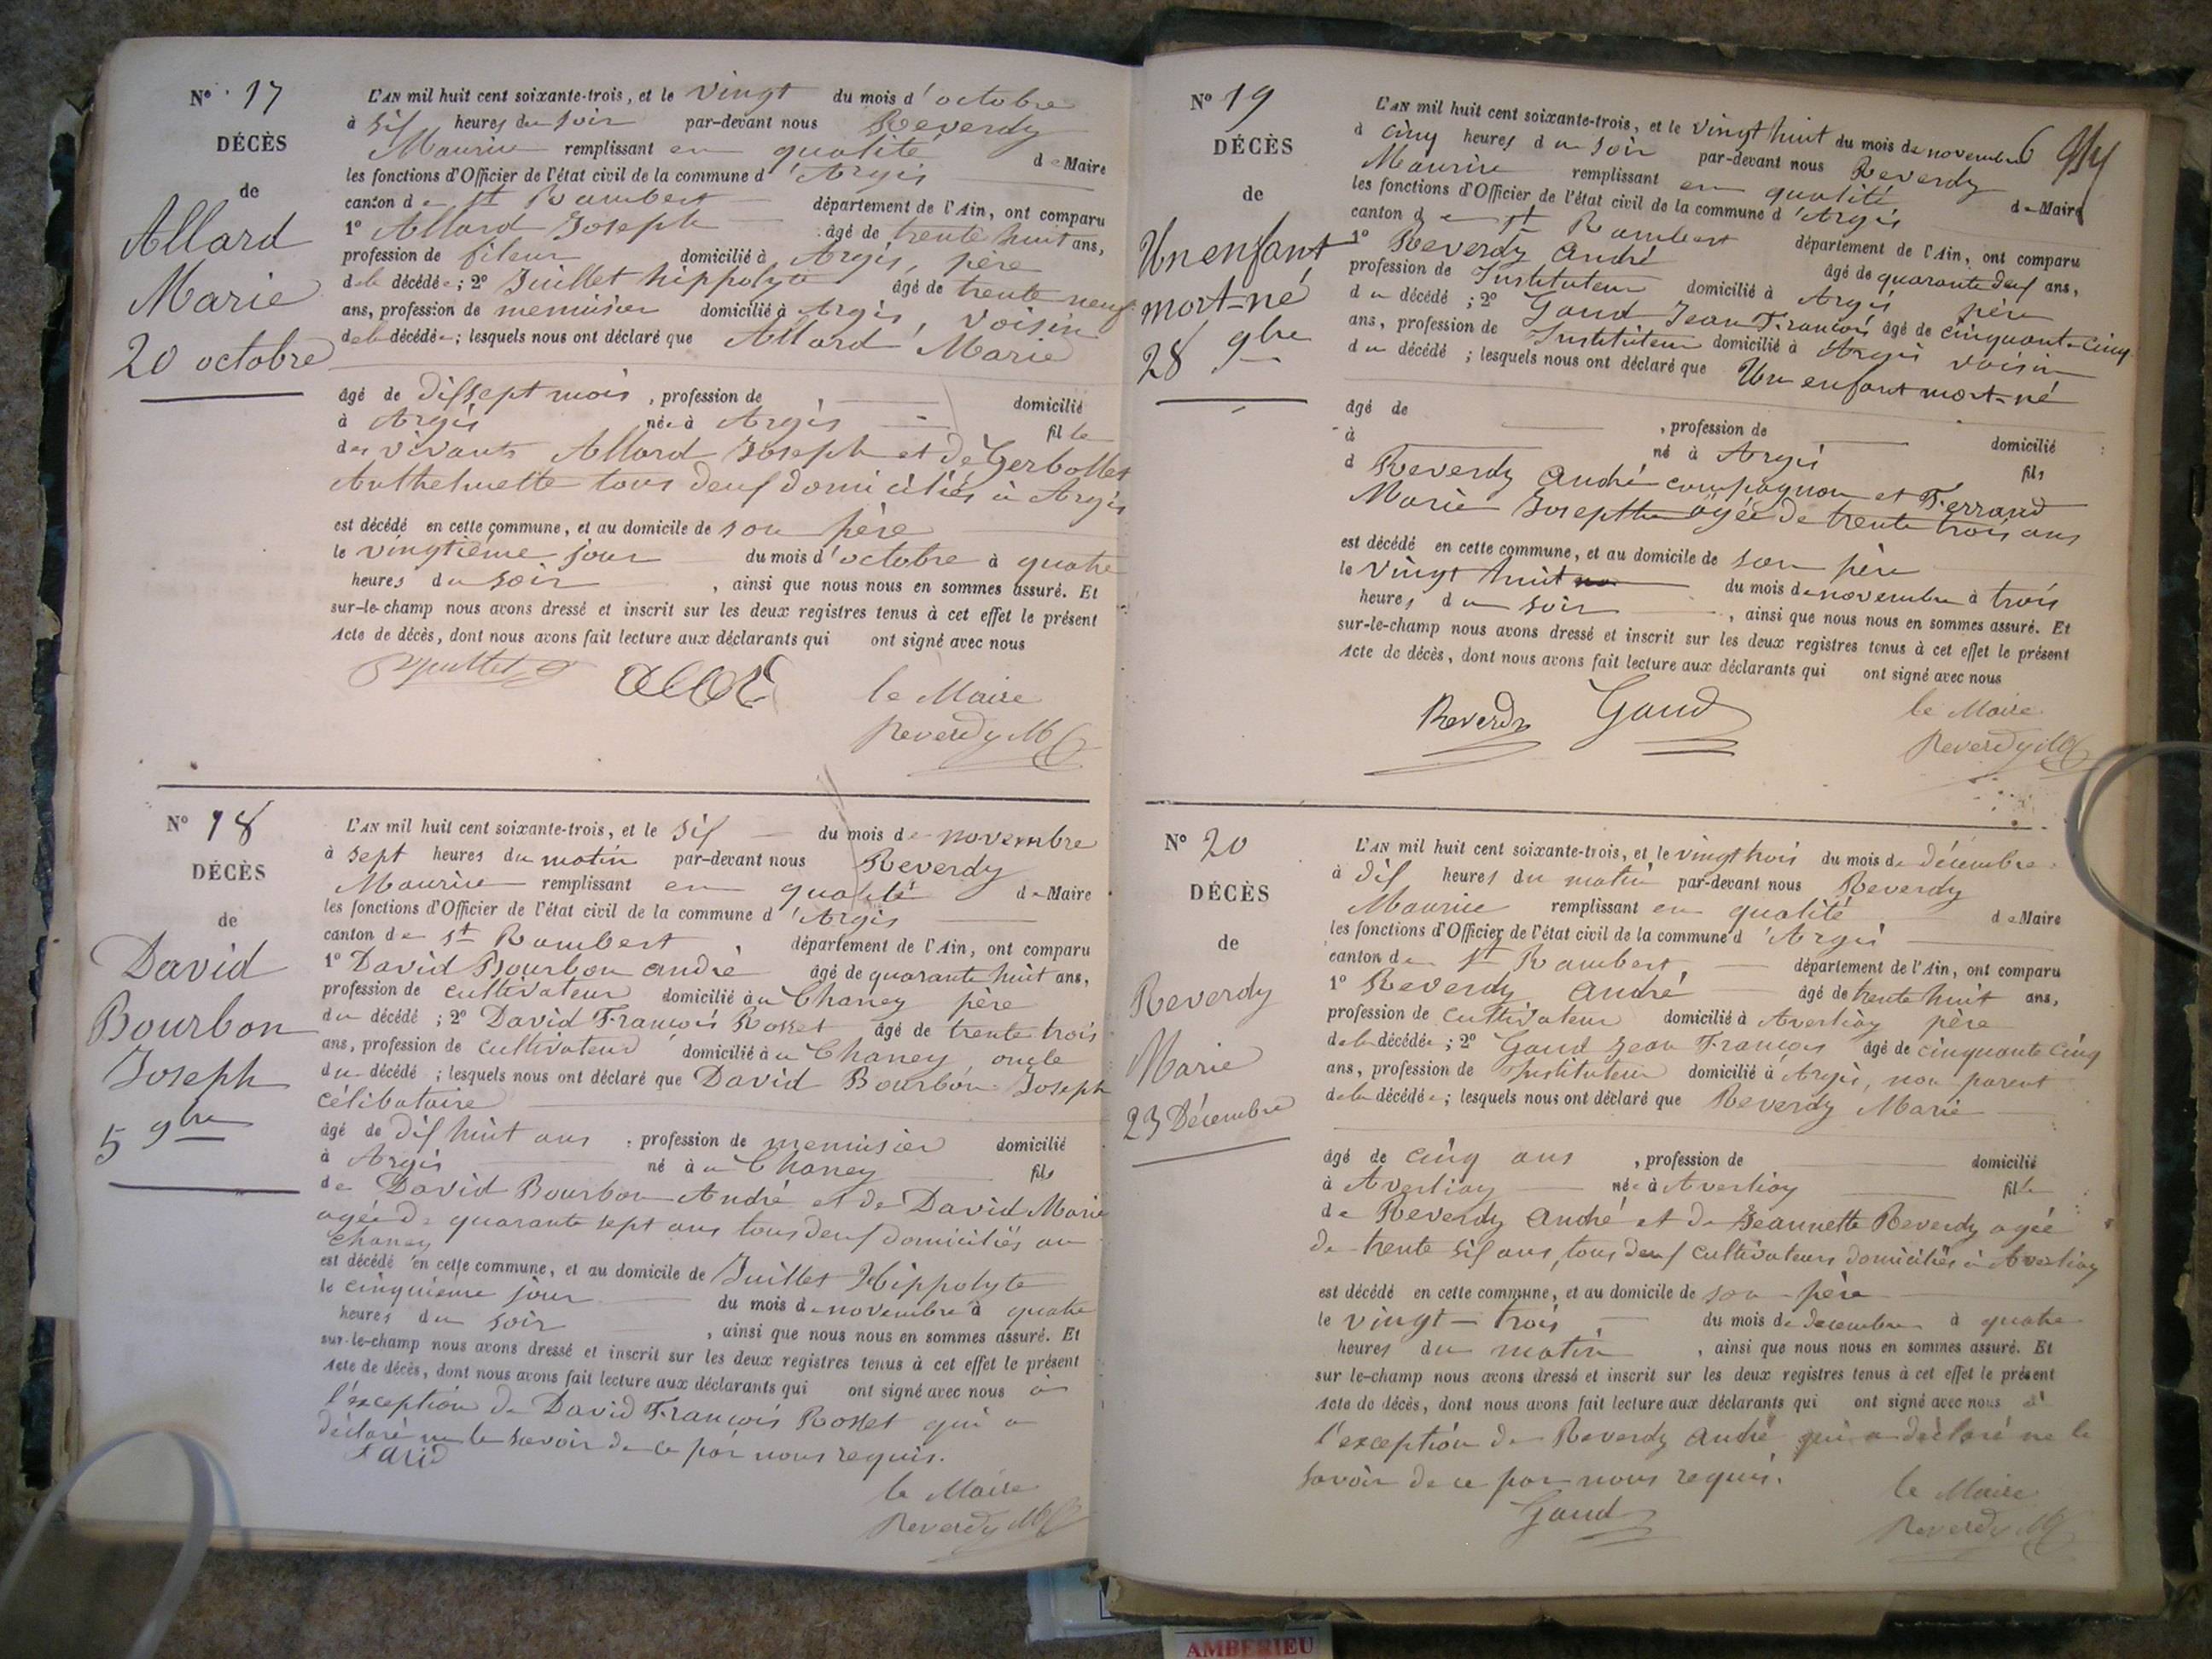 N° 17
DÉCÈS
de
Allard
Marie
20 octobre
L'AN mil huit cent soixante-trois, et le vingt du mois d'octobre
à six heures du soir par-devant nous Reverdy
Maurice remplissant en qualité de Maire
les fonctions d'Officier de l'état civil de la commune d'Argis
canton de St Rambert département de l'Ain, ont comparu
1° Allard Joseph âgé de trente huit ans,
profession de fileur domicilié à Argis, père
de la décédée; 2° Juillet hippolyte âgé de trente neuf
ans, profession de menuisier domicilié à Argis, voisin
de la décédée; lesquels nous ont déclaré que Allard Marie
âgé de dix sept mois, profession de domicilié
à Argis née à Argis fille
des vivants Allard Joseph et de Gerbollet
Anthelmette tous deux domiciliés à Argis
est décédé en cette commune, et au domicile de son père
le vingtième jour du mois d'octobre à quatre
heures du soir, ainsi que nous nous en sommes assuré. Et
sur-le-champ nous avons dressé et inscrit sur les deux registres tenus à cet effet le présent
Acte de décès, dont nous avons fait lecture aux déclarants qui ont signé avec nous
le Maire
Reverdy M
N° 18
DÉCÈS
de
David
Bourbon
Joseph
5 9bre
L'AN mil huit cent soixante-trois, et le six du mois de novembre
à sept heures du matin par-devant nous Reverdy
Maurice remplissant en qualité de Maire
les fonctions d'Officier de l'état civil de la commune d'Argis
canton de St Rambert, département de l'Ain, ont comparu
1° David Bourbon andré âgé de quarante huit ans,
profession de cultivateur domicilié à u Chaney père
du décédé; 2° David François Rosset âgé de trente trois
ans, profession de cultivateur domicilié à u Chaney oncle
du décédé; lesquels nous ont déclaré que David Bourbon Joseph
célibataire
âgé de dix huit ans, profession de menuisier domicilié
à Argis né à u Chaney fils
de David Bourbon André et de David Marie
agée de quarante sept ans tous deux domiciliés au
Chaney
est décédé en cette commune, et au domicile de Juillet Hippolyte
le cinquième jour du mois de novembre à quatre
heures du soir, ainsi que nous nous en sommes assuré. Et
sur-le-champ nous avons dressé et inscrit sur les deux registres tenus à cet effet le présent
Acte de décès, dont nous avons fait lecture aux déclarants qui ont signé avec nous à
l'exception de David François Rosset qui a
déclaré ne le savoir de ce par nous requis.
le Maire
Reverdy M
6
N° 19
DÉCÈS
de
Un enfant
mort-né
28 9bre
L'AN mil huit cent soixante-trois, et le vingt huit du mois de novembre
à cinq heures du soir par-devant nous Reverdy
Maurice remplissant en qualité de Maire
les fonctions d'Officier de l'état civil de la commune d'Argis
canton de St Rambert département de l'Ain, ont comparu
1° Reverdy André âgé de quarante deux ans,
profession de Instituteur domicilié à Argis père
du décédé; 2° Gaud Jean François âgé de cinquante cinq
ans, profession de Instituteur domicilié à Argis voisin
du décédé; lesquels nous ont déclaré que Un enfant mort-né
âgé de, profession de domicilié
à né à Argis fils
d Reverdy André compagnon et Ferrand
Marie Josepthe agée de trente trois ans
est décédé en cette commune, et au domicile de son père
le vingt huit du mois de novembre à trois
heures du soir, ainsi que nous nous en sommes assuré. Et
sur-le-champ nous avons dressé et inscrit sur les deux registres tenus à cet effet le présent
Acte de décès, dont nous avons fait lecture aux déclarants qui ont signé avec nous
Reverdy Gaud le Maire
Reverdy M
N° 20
DÉCÈS
de
Reverdy
Marie
23 Décembre
L'AN mil huit cent soixante-trois, et le vingt trois du mois de décembre
à dix heures du matin par-devant nous Reverdy
Maurice remplissant en qualité de Maire
les fonctions d'Officier de l'état civil de la commune d'Argis
canton de St Rambert, département de l'Ain, ont comparu
1° Reverdy André âgé de trente huit ans,
profession de cultivateur domicilié à Averliay père
de la décédée; 2° Gaud Jean François âgé de cinquante cinq
ans, profession de Instituteur domicilié à Argis, non parent
de la décédée; lesquels nous ont déclaré que Reverdy Marie
âgé de cinq ans, profession de domicilié
à Averliay née à Averliay fille
de Reverdy André et de Jeannette Reverdy agée
de trente six ans, tous deux cultivateurs domiciliés à Averliay
est décédé en cette commune, et au domicile de son père
le vingt-trois du mois de decembre à quatre
heures du matin, ainsi que nous nous en sommes assuré. Et
sur le-champ nous avons dressé et inscrit sur les deux registres tenus à cet effet le présent
Acte de décès, dont nous avons fait lecture aux déclarants qui ont signé avec nous à
l'exception de Reverdy André qui a déclaré ne le
savoir de ce par nous requis.
Gaud le Maire
Reverdy M
AMBERIEU